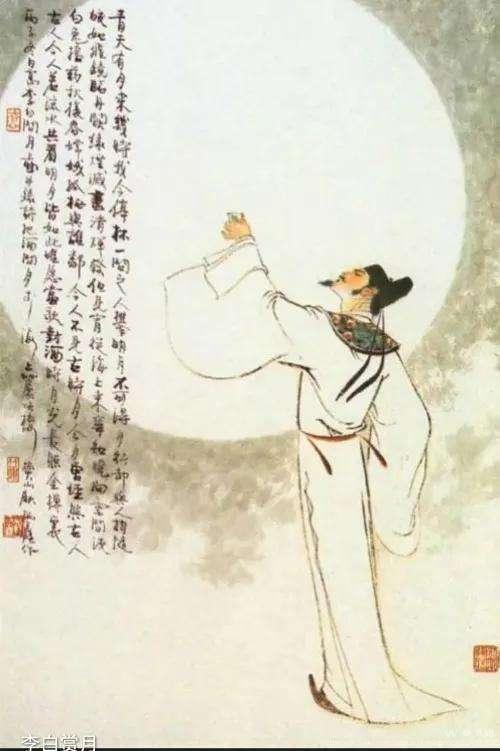 青天有月來幾時我今停杯一問之人攀明月不可得月行卻與人相隨
皎如飛鏡臨丹闕綠煙滅盡清輝發但見宵從海上來寧知曉向雲間沒
白兔搗藥秋復春嫦娥孤棲與誰鄰今人不見古時月今月曾經照古人
古人今人若流水共看明月皆如此唯願當歌對酒時月光長照金樽裏
丙子冬日寫李白問月圖并錄詩把酒問月於海上
李白赏月